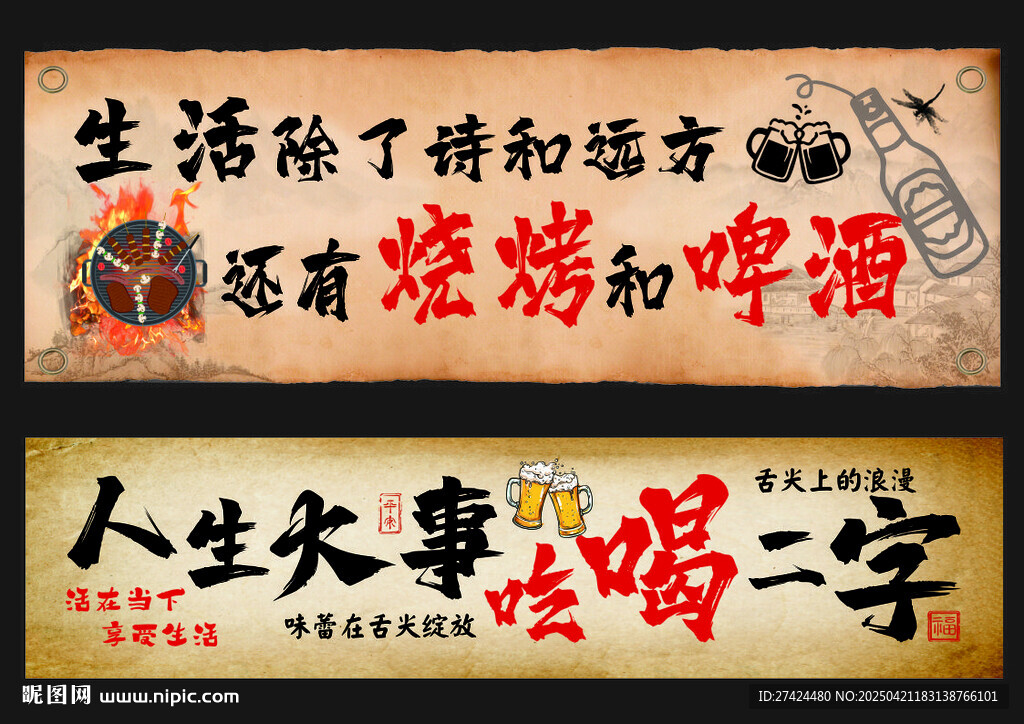 生活除了诗和远方
还有烧烤和啤酒
舌尖上的浪漫
人生大事
吃喝二字
活在当下
享受生活
味蕾在舌尖绽放
福
昵图网 www.nipic.com
ID:27424480 NO:20250421183138766101